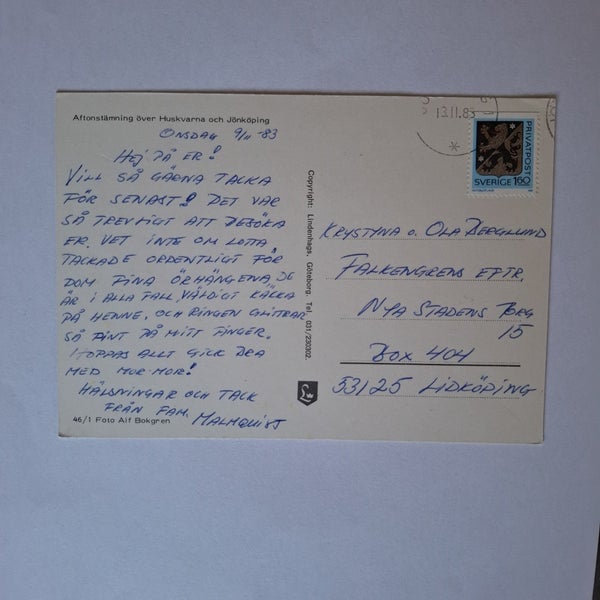 Aftonstämning över Huskvarna och Jönköping
ONSDAG 9/11 -83
HEJ PÅ ER!
VILL SÅ GÄRNA TACKA
FÖR SENAST! DET VAR
SÅ TREVLIGT ATT BESÖKA
ER. VET INTE OM LOTTA
TACKADE ORDENTLIGT FÖR
DOM FINA ÖRHÄNGENA, DE
ÄR I ALLA FALL VÄLDIGT KÄCKA
PÅ HENNE, OCH RINGEN GLITTRAR
SÅ FINT PÅ MITT FINGER.
HOPPAS ALLT GICK BRA
MED MOR-MOR!
HÄLSNINGAR OCH TACK
FRÅN FAM. MALMQUIST
46/1 Foto Alf Bokgren
Copyright: Lindenhags, Göteborg. Tel. 031/230302.
13.11.83
PRIVATPOST
SVERIGE 160
KRYSTYNA o. OLA BERGLUND
FALKENGRENS EFTR.
NYA STADENS TORG
15
BOX 404
53125 LIDKÖPING